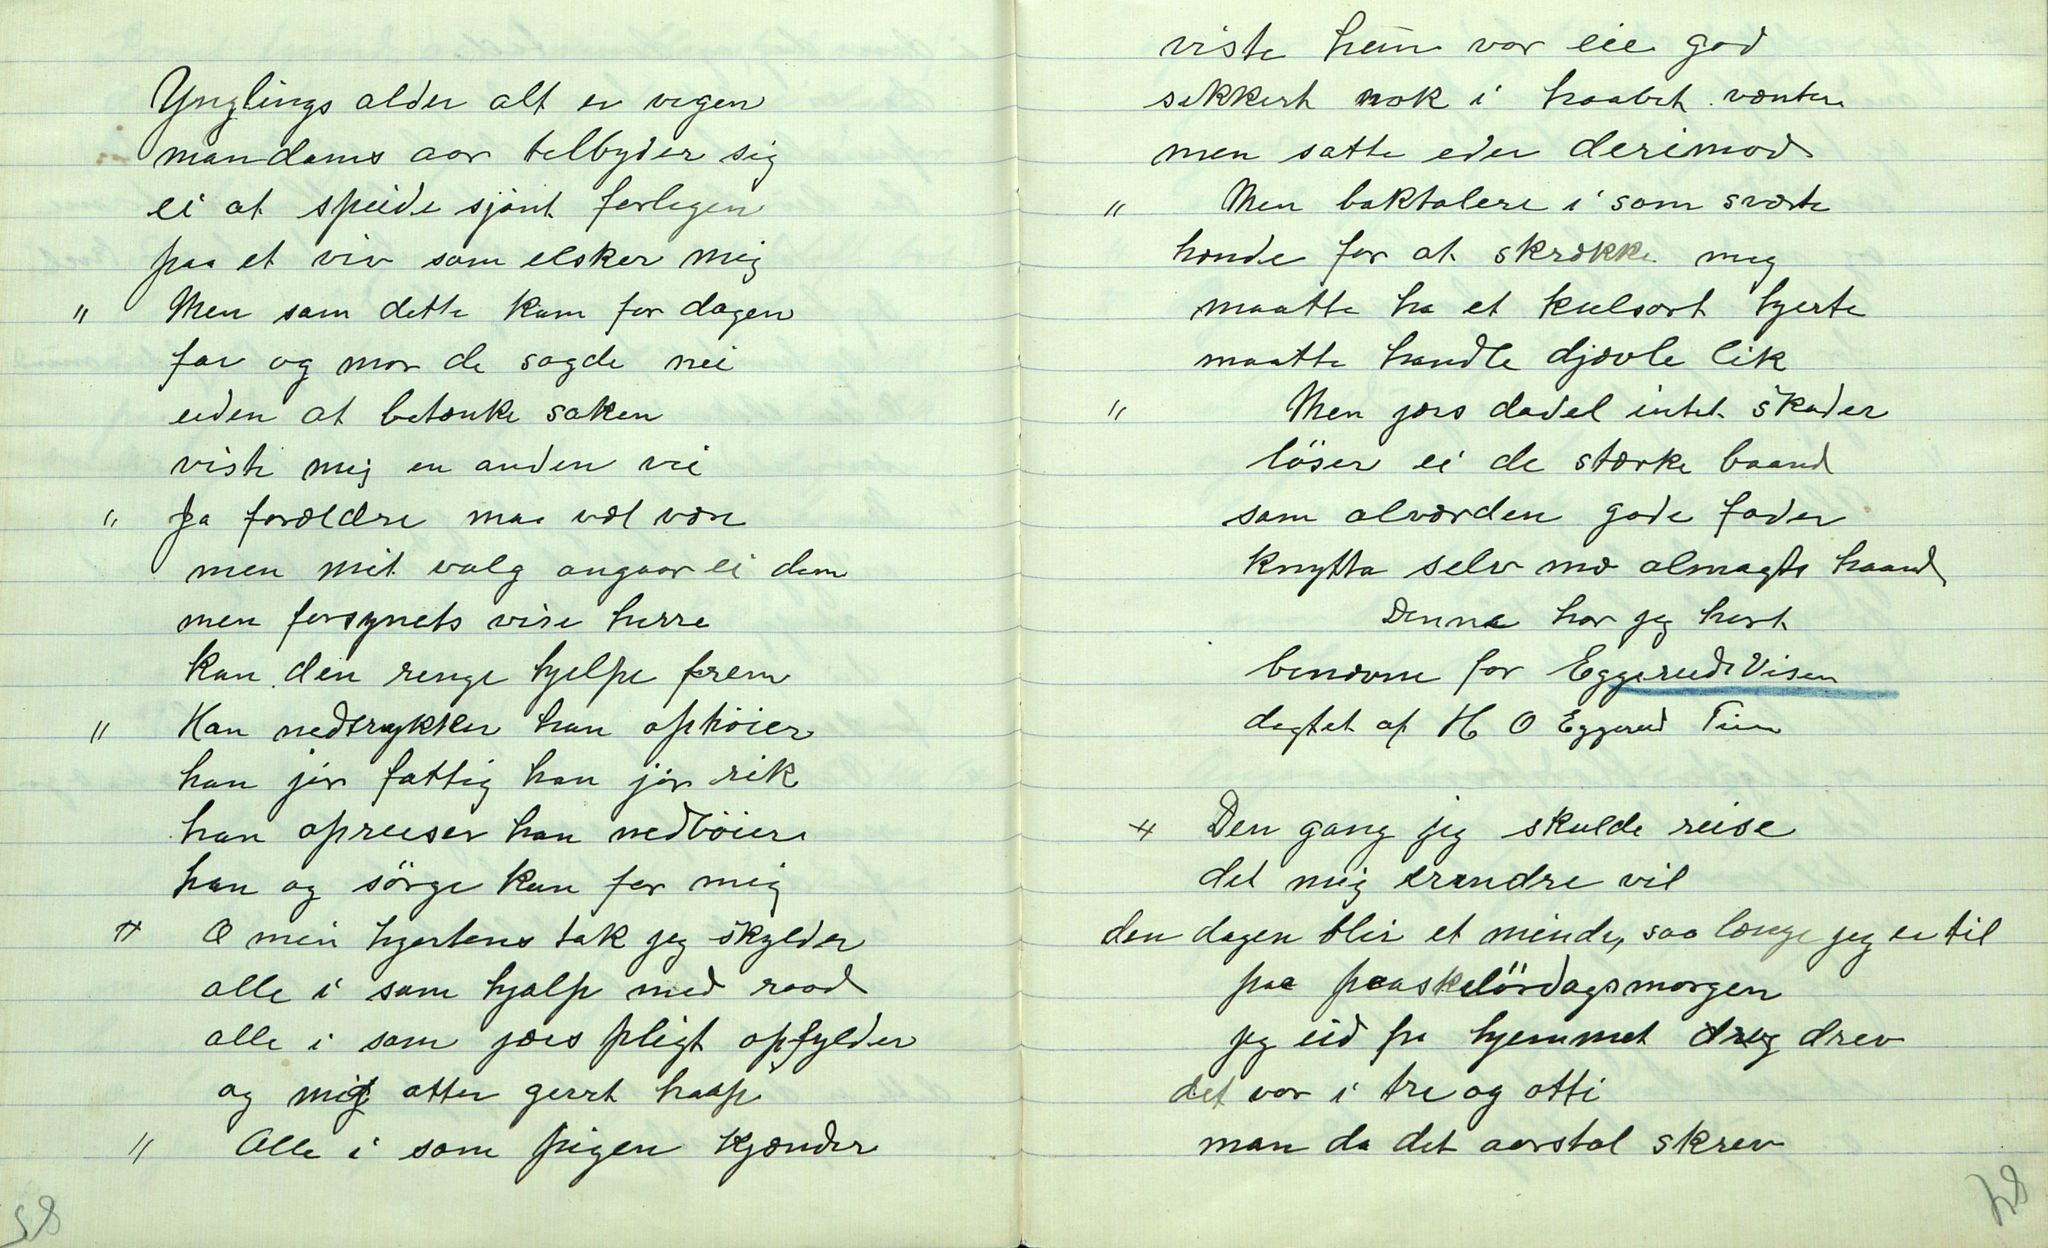 Ynglings alder alt er vegen
mandoms aar telbyder sig
ei at speide sjönt forlegen
paa et viv som elsker mig
" Men som dette kom for dagen
far og mor de sagde nei
uden at betænke saken
viste mig en anden vei
" Ja forældre maa væl være
men mit valg angaar ei dem
men forsynets vise herre
kan den renge hjelpe frem
" Han nedtrykker han ophöier
han jör fattig han jör rik
han opreiser han nedböier
han og sörge kan for mig
" O min hjertens tak jeg skylder
alle i som hjalp med raad
alle i som jærs pligt opfylder
og mig atter gerrt haap
" Alle i som pigen kjænder
58
viste hun var eie god
sekkert nok i haabet vænter
men satte eder derimod
" Men baktalere i som sværte
hende for at skrække meg
maatte ha et kulsort hjerte
maatte handle djævle lik
" Men jærs dadel intet skader
löser ei de stærke baand
som alværden gode fader
knytta selv mæ almagts haand
Denne har jeg hørt
benævne for Eggerud Visen
degtet af H O Eggerud Tinn
" Den gang jeg skulde reise
det mig erendre vil
den dagen blir et minde, saa længe jeg er til
paa paaskelördagsmorgen
jeg ud fra hjemmet dreg drev
det var i tre og otti
man da det aarstal skrev